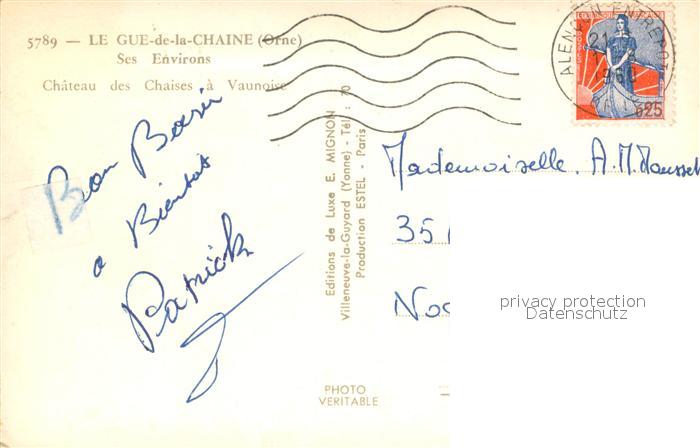 5789 — LE GUE-de-la-CHAINE (Orne)
Ses Environs
Château des Chaises à Vaunoise
Bon Baisir
a Bientot
Patrick
Editions de Luxe E. MIGNON
Villeneuve-la-Guyard (Yonne) - Tél : 70
Production ESTEL - Paris
PHOTO
VERITABLE
ALENÇON-ENTREPOT
21
1960
0,25
Mademoiselle. A.M.Mousset
35
privacy protection
Datenschutz